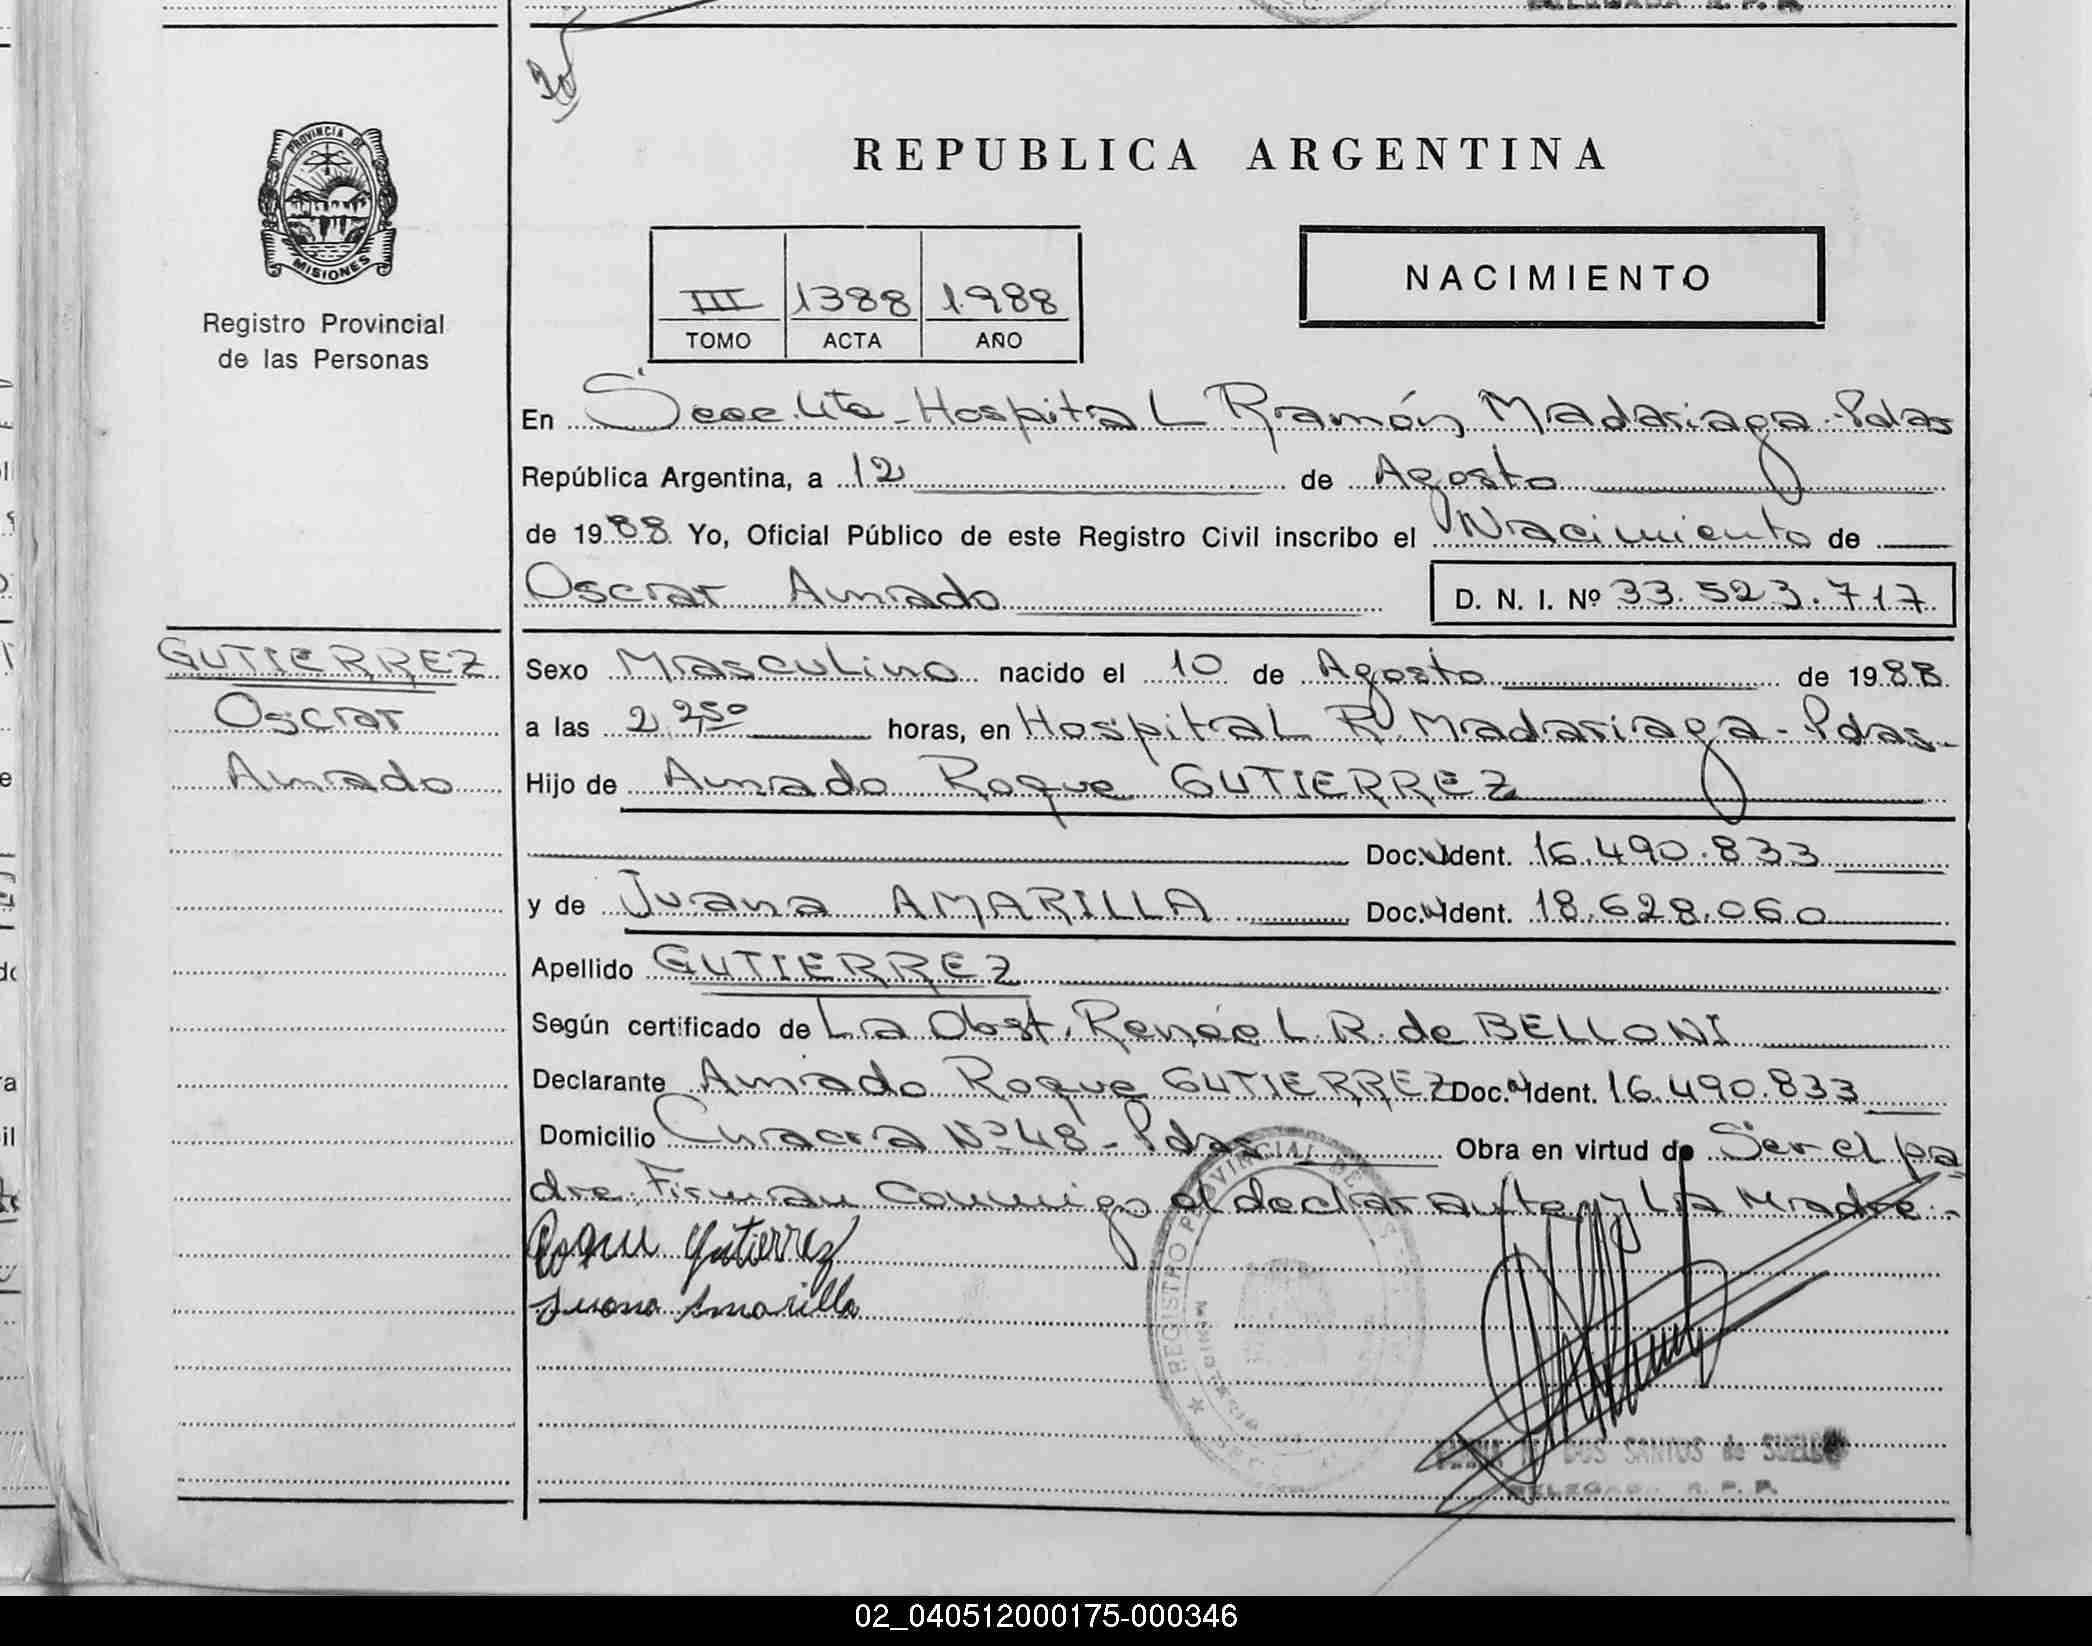 PROVINCIA DE
MISIONES
Registro Provincial
de las Personas
REPUBLICA ARGENTINA
III 1388 1988
TOMO ACTA AÑO
NACIMIENTO
En Secc. 4ta - Hospital Ramón Madariaga - Pdas
República Argentina, a 12 de Agosto
de 1988 Yo, Oficial Público de este Registro Civil inscribo el Nacimiento de
Oscar Amado D. N. I. Nº 33.523.717
GUTIERREZ
Oscar
Amado
Sexo Masculino nacido el 10 de Agosto de 1988
a las 2,250 horas, en Hospital R. Madariaga - Pdas.-
Hijo de Amado Roque GUTIERREZ
Doc. Ident. 16.490.833
y de Juana AMARILLA Doc. Ident. 18.628.060
Apellido GUTIERREZ
Según certificado de La Obst. Renée L. R. de BELLONI
Declarante Amado Roque GUTIERREZ Doc. Ident. 16.490.833
Domicilio Nº 48 - Pdas Obra en virtud de Ser el pa
dre. Firman Conmigo el declarante y La Madre.-
Roque Gutierrez
Juana Amarilla
REGISTRO PROVINCIAL DE
DOS SANTOS de
DELEGADA R. P. P.
02_040512000175-000346